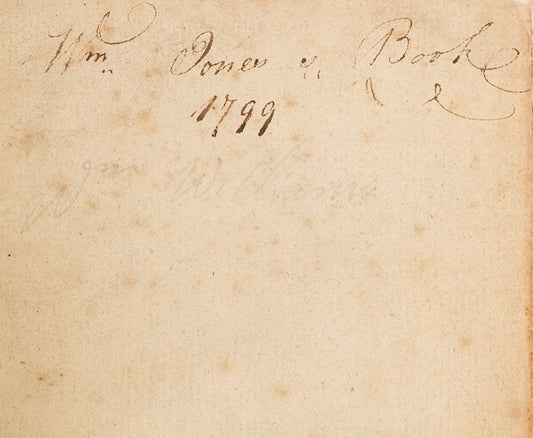 Wm Jones's Book
1799
Wm Williams